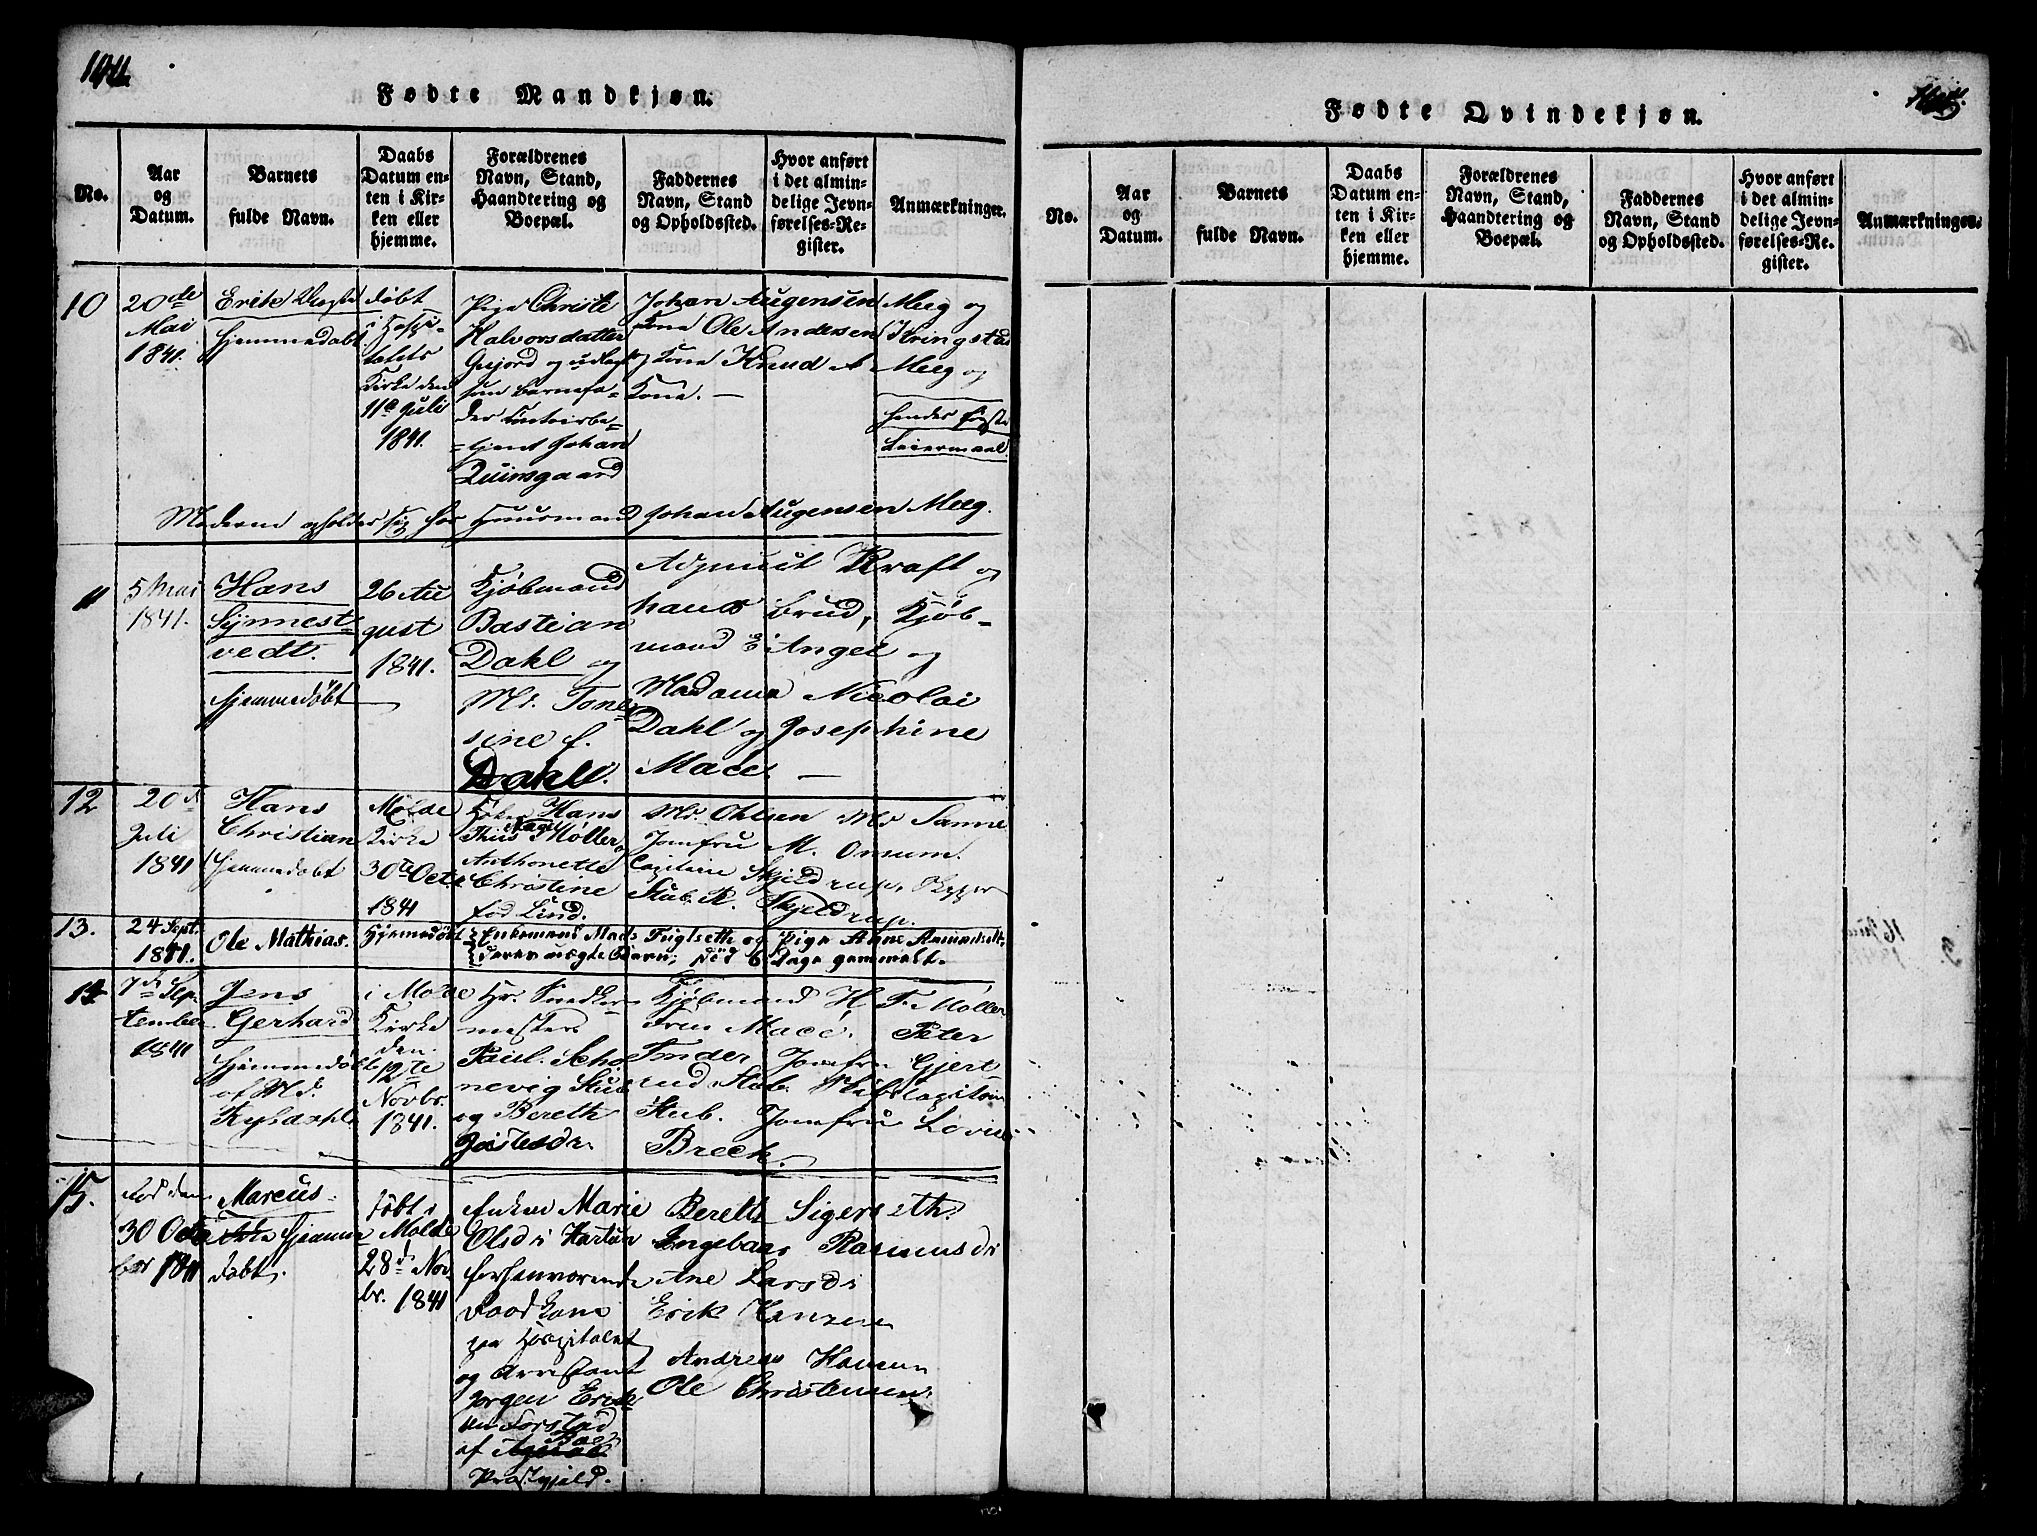 Fødte Mandkjøn.
No.
Aar
og
Datum.
Barnets
fulde Navn.
Daabs
Datum en-
ten i Kir-
ken eller
hjemme.
Forældrenes
Navn, Stand,
Haandtering og
Boepæl.
Faddernes
Navn, Stand
og Opholdssted.
Hvor anført
i det almin-
delige Jevn-
førelses-Re-
gister.
Anmærkninger.
10
20de
Mai
1841.
Erik
hjemmedøbt
døbt
i Hospi-
talets
Kirke den
11e Juli
1841.
Pige Christi
Halvorsdatter
Gujord og udlagt
som Barnefa-
der
Johan
Quinsgaard
Johan Augensen
Kone Ole Andersen
Kone Knud A
Kone. —
Meeg og
Kringstad
Meeg og
hendes første
Leiermaal
Moderen opholder sig hos Huusmand Johan Augensen Meeg.
11
5 Mai
1841.
Hans
Synnest-
vedt.
hjemmedøbt
26 Au
gust
1841.
Kjøbmand
Bastian
Dahl og
Md. Tone
sine f.
Dahl.
Adjunct Kraft og
hans Brud, Kjøb-
mand E Angel og
Madame Nicolai
Dahl og Josephine
Mace. —
12
20d
Juli
1841
Hans
Christian
hjemmedøbt
Molde
Kirke
30te Octr
1841
Hans
Thiis Møller
Anthonette
Christine
fød Lind.
Md. Ohlsen Md Sanne
Jomfru M. Onsum.
Capitain Skjeldrup,
Stub. R. Skjeldrup.
13.
24 Sept.
1841.
Ole Mathias.
Hjemmedøbt
Enkemand Mads Fuglseth og Pige Ane Amundsdtr
deres uægte Barn; død 6 Dage gammelt.
14
7de Sep-
tember
1841
Jens
Gerhard
hjemmedøbt
af Md.
i Molde
Kirke
den
12te
Novbr.
1841.
Hr. Snedker-
mester
Paul. Scho
nevig Stub
og Bereth
Kjøbmand H. T. Møller
Fru Mace. Peter
Tønder Jomfru Gjert-
rud Stub.
Stub. Jomfru Lovise
Brech.
15.
Fød den
30 Octo
ber 1841
Marcus
hjemme
døbt.
døbt i
Molde
28d Nov
br. 1841
Enken Marie
Olsdr
forhenværende
paa Hospitalet
og Arrestant
Jørgen Erik
sen Forstad
af
Præstegjeld.
Bereth Sigerseth.
Ingebaar Rasmusdr
Ane Larsdr
Erik Hansen
Andreas Hansen
Ole Christensen.
Fødte Qvindekjøn.
No.
Aar
og
Datum.
Barnets
fulde Navn.
Daabs
Datum en-
ten i Kir-
ken eller
hjemme.
Forældrenes
Navn, Stand,
Haandtering og
Boepæl.
Faddernes
Navn, Stand
og Opholdssted.
Hvor anført
i det almin-
delige Jevn-
førelses-Re-
gister.
Anmærkninger.